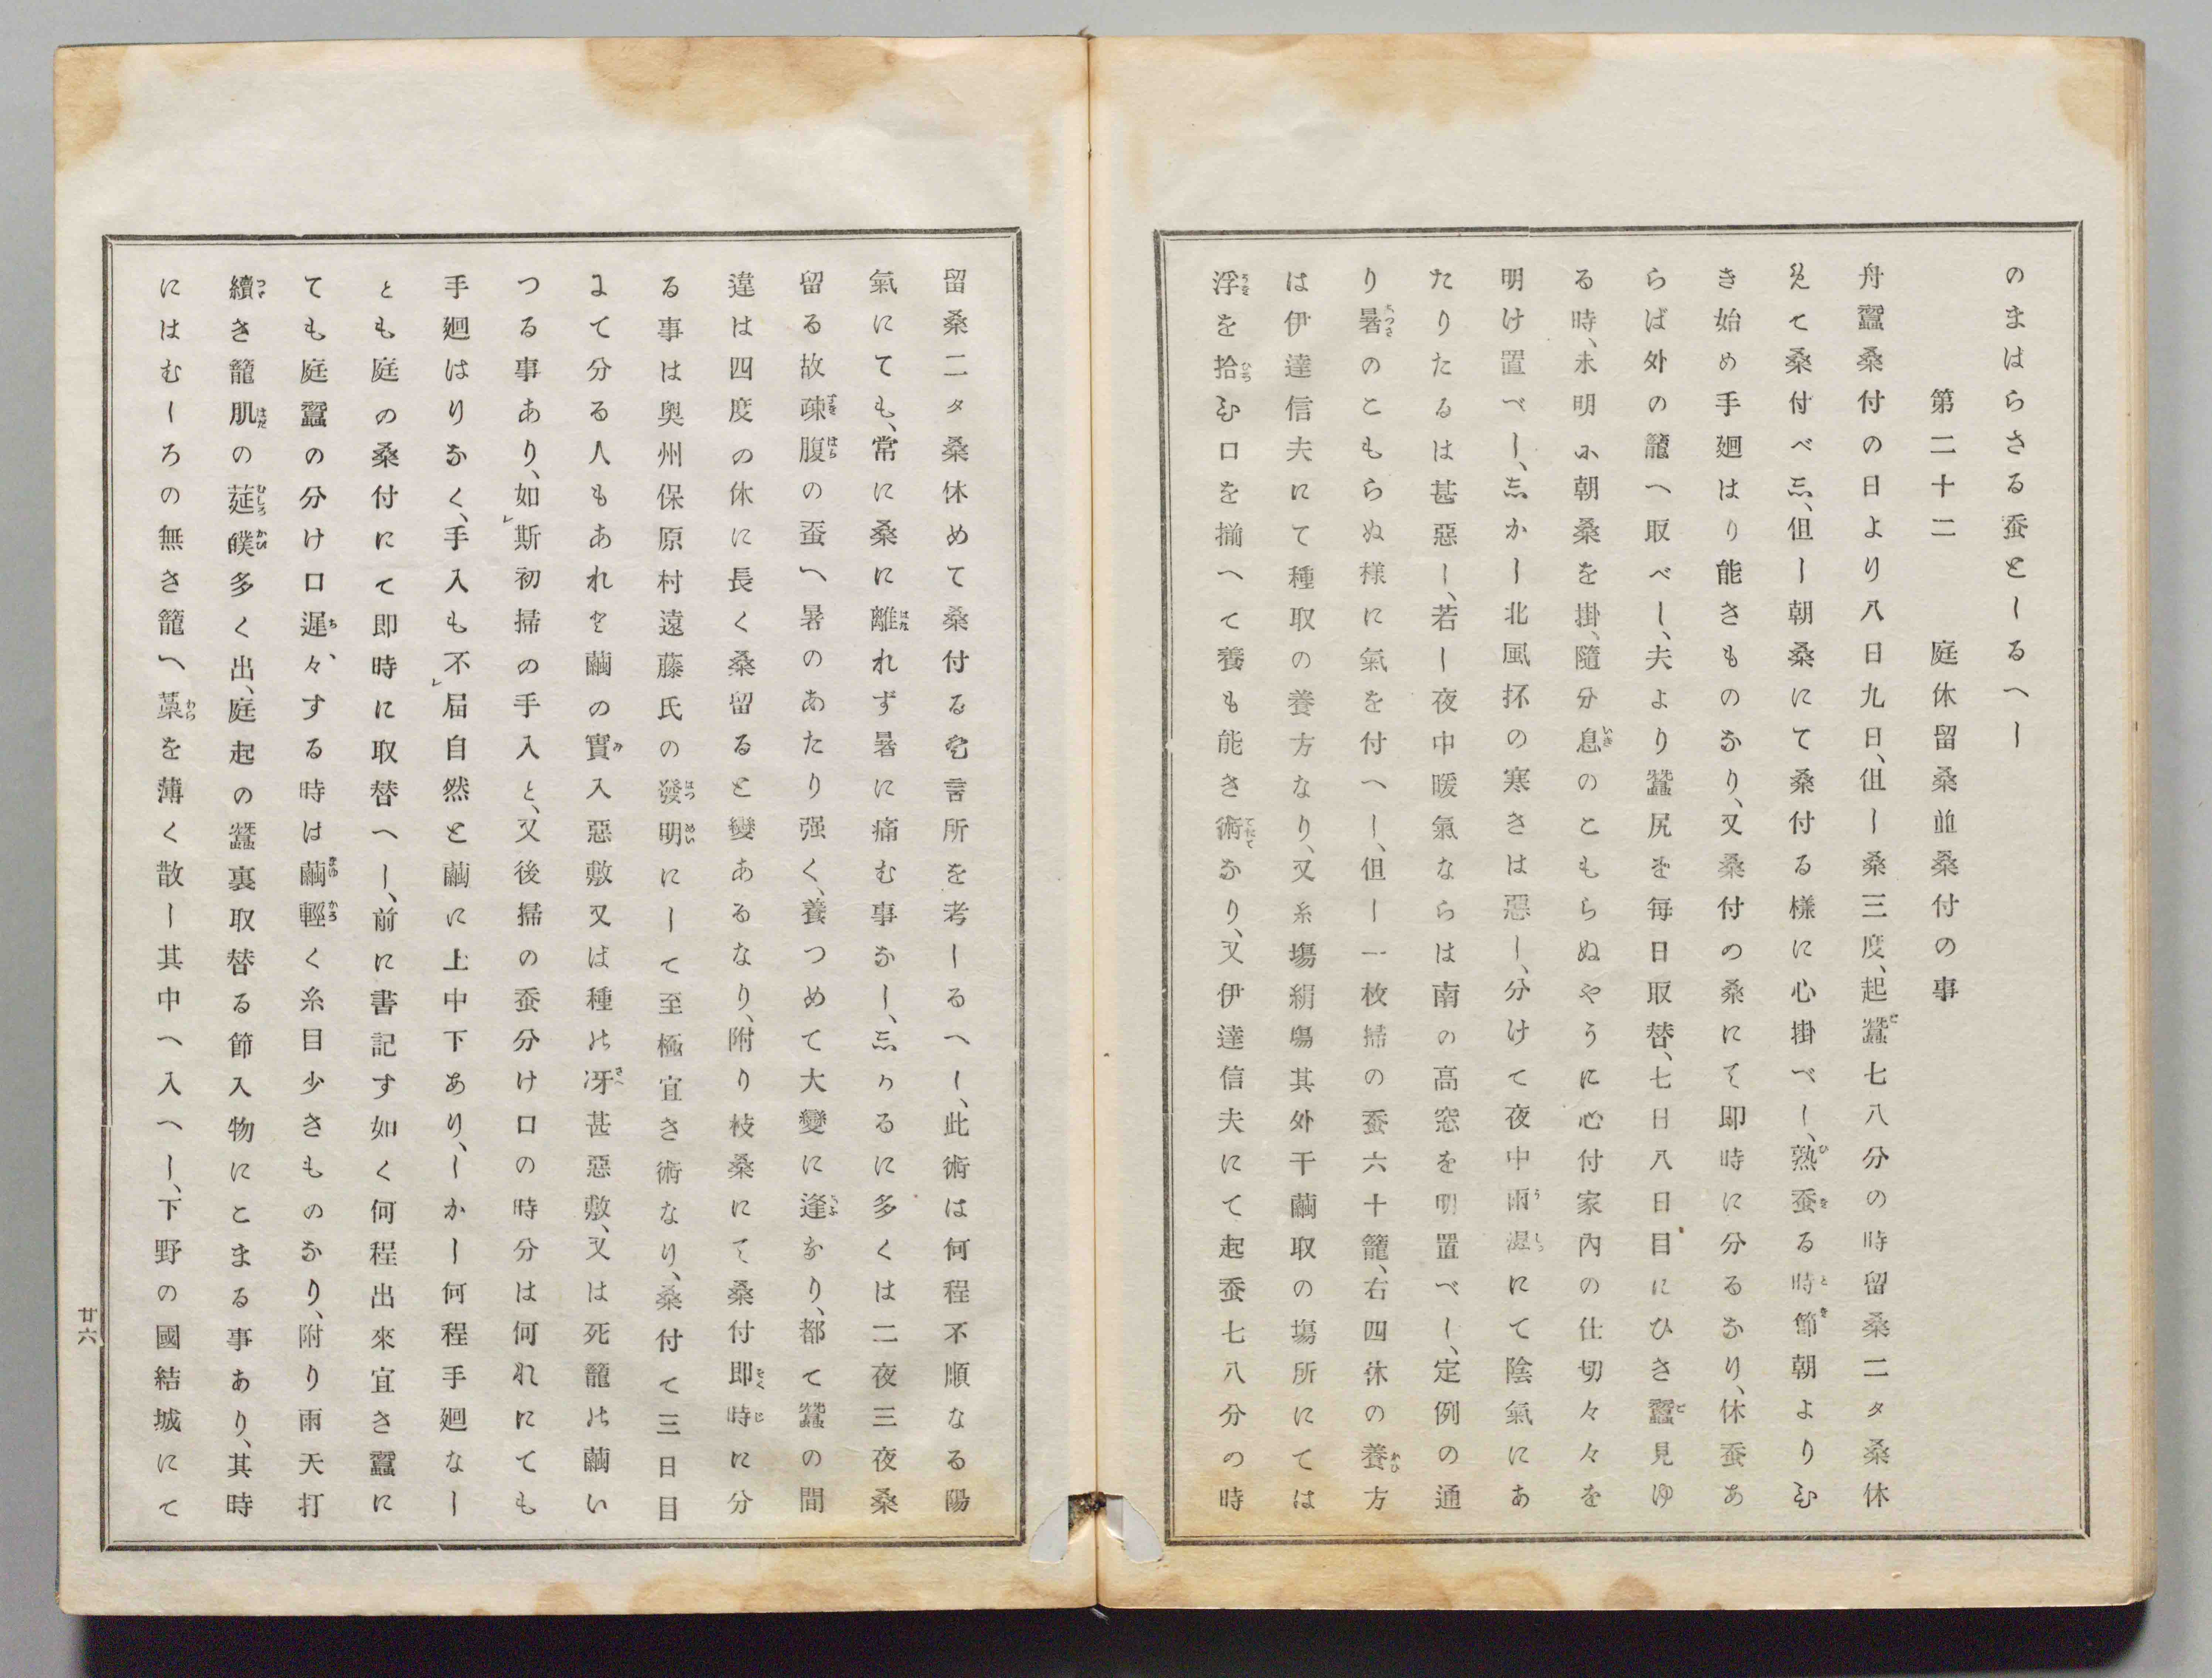 のまはらさる蚕としるへし
第二十二　庭休留桑並桑付の事
舟蠶桑付の日より八日九日、但し桑三度、起蠶七八分の時留桑二タ桑休
えて桑付べし、但し朝桑にて桑付る様に心掛べし、熟蚕る時節朝よりむ
き始め手廻はり能きものなり、又桑付の桑にて即時に分るなり、休蚕あ
らば外の籠へ取べし、夫より蠶尻を毎日取替、七日八日目にひき蠶見ゆ
る時、未明に朝桑を掛、隨分息のこもらぬやうに心付家内の仕切々々を
明け置べし、しかし北風抔の寒さは惡し、分けて夜中雨濕にて陰氣にあ
たりたるは甚惡し、若し夜中暖氣ならは南の高窓を明置べし、定例の通
り暑のこもらぬ様に氣を付へし、但し一枚掃の蚕六十籠、右四休の養方
は伊達信夫にて種取の養方なり、又糸塲絹塲其外干繭取の塲所にては
浮を拾む口を揃へて養も能き術なり、又伊達信夫にて起蚕七八分の時
留桑二タ桑休めて桑付る宅言所を考しるへし、此術は何程不順なる陽
氣にても、常に桑に離れず暑に痛む事なし、しかるに多くは二夜三夜桑
留る故疎腹の蚕へ暑のあたり强く、養つめて大變に逢なり、都て蠶の間
違は四度の休に長く桑留ると變あるなり、附り枝桑にて桑付即時に分
る事は奥州保原村遠藤氏の發明にして至極宜き術なり、桑付て三日目
まて分る人もあれど繭の實入惡敷又は種の冴甚惡敷、又は死籠の繭い
つる事あり、如斯初掃の手入と、又後掃の蚕分け口の時分は何れにても
手廻はりなく、手入も不届自然と繭に上中下あり、しかし何程手廻なし
とも庭の桑付にて即時に取替へし、前に書記す如く何程出來宜き蠶に
ても庭蠶の分け口遲々する時は繭輕く糸目少きものなり、附り雨天打
續き籠肌の莚多く出、庭起の蠶裏取替る節入物にこまる事あり、其時
にはむしろの無き籠へ藁を薄く散し其中へ入へし、下野の國結城にて
廿六